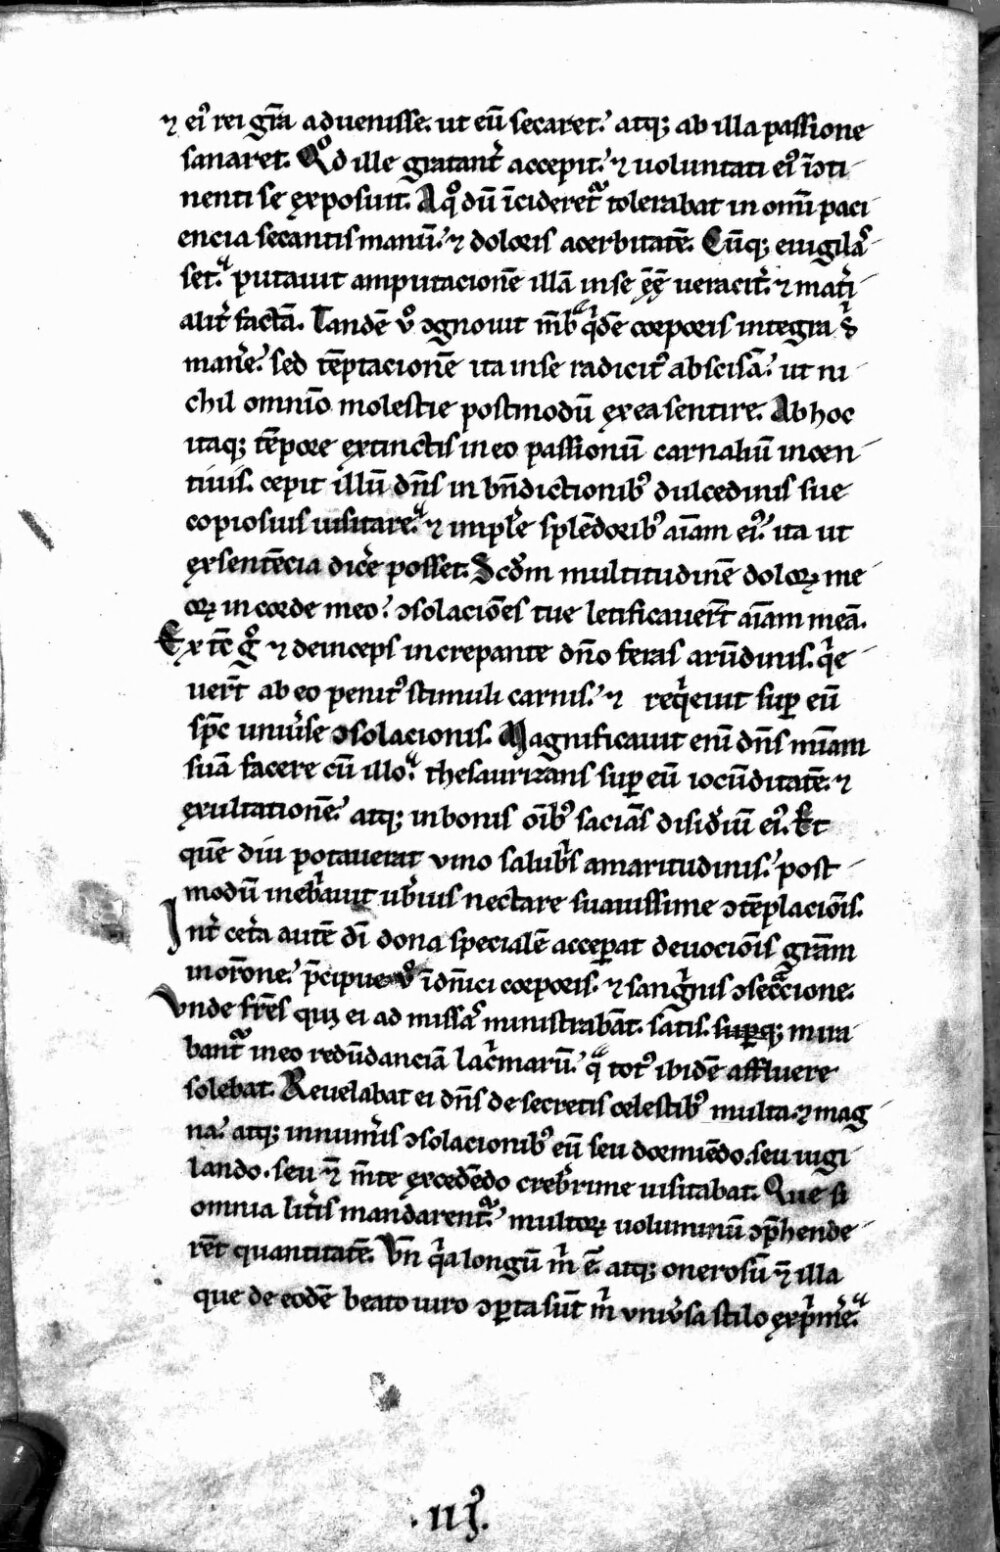 ⁊ ei᷒ rei gr̄a aduenisse. ut eū secaret. atq; ab illa passione
sanaret. Qd̊ ille gratant̉ accepit. ⁊ uoluntati ei᷒ ꝯti-
nenti se exposuit. Aqͦ dū īcideretᷣ tolerabat in omī paci
encia secantis manū. ⁊ doloris acerbitatē. Cūq; euigilaͣs-
set. putauit amputacionē illā in se eē ueracit̉. ⁊ mat̉i-
alit̉ factā. Tandē v̊ ꝯgnouit mēbͣ qͥdē corporis integra ꝑ-
man̉e. sed tēptacionē ita in se radicit᷒ abscisā. ut ni-
chil omnīo molestie postmodū ex ea sentire. Ab hoc
itaq; tēpore extinctis in eo passionū carnaliū incen-
tiuis. cepit illū dn̄s in bn̄dictionib᷒ dulcedinis sue
copiosius uisitare. ⁊ impl̉e splēdorib᷒ aīam ei᷒. ita ut
ex sentēcia dic̉e posset. Scd̄m multitudinē dolorꝝ me-
orꝝ in corde meo. ꝯsolaciōes tue letificauer̄t aīam meā.
Ex tc̄ g̊ ⁊ deinceps increpante dn̄o feras arūdinis. qͥe-
uer̄t ab eo penit᷒ stimuli carnis. ⁊ reqͥeuit suꝑ eū
sp̄c uniủse ꝯsolacionis. Magnificauit enī dn̄s mīam
suā facere cū illo. thesaurizans suꝑ eū iocūditatē. ⁊
exultationē. atq; in bonis oīb᷒ saciās disid̉iū ei᷒. Et
quē diu potauerat vino salubͥs amaritudinis. post-
modū inebͥauit ubͥius nectare suauissime ꝯtēplaciōis.
Int̉ cet̉a autē dī dona specialē acceꝑat deuociōis gr̄am
in or̄one. p̄cipue v̊ ī dn̄ici corporis. ⁊ sangͥnis ꝯsecᷓcione.
Vnde fr̄es qui ei ad missaͣs ministrabāt. satis. suꝑq; mira-
bantᷣ in eo redūdanciā lac̉marū. qͣ tot᷒ ibidē affluere
solebat. Reuelabat ei dn̄s de secretis celestib᷒ multa. ⁊ mag-
na. atq; innum̉is ꝯsolacionib᷒ eū seu dormiēdo. seu uigi-
lando. seu ⁊̄ m̄te excedēdo crebͥrime uisitabat. Que si
omnia lit̉is mandarentᷣ. multorꝝ uoluminū ꝯp̄hende-
rēt quantitatē. Vn̄ qͥa longū m̄ ē atq; onerosū ⁊̄ illa
que de eodē beato uiro ꝯꝑta sūt m̄ vniủsa stilo expͥm̉e.
.iij᷒.